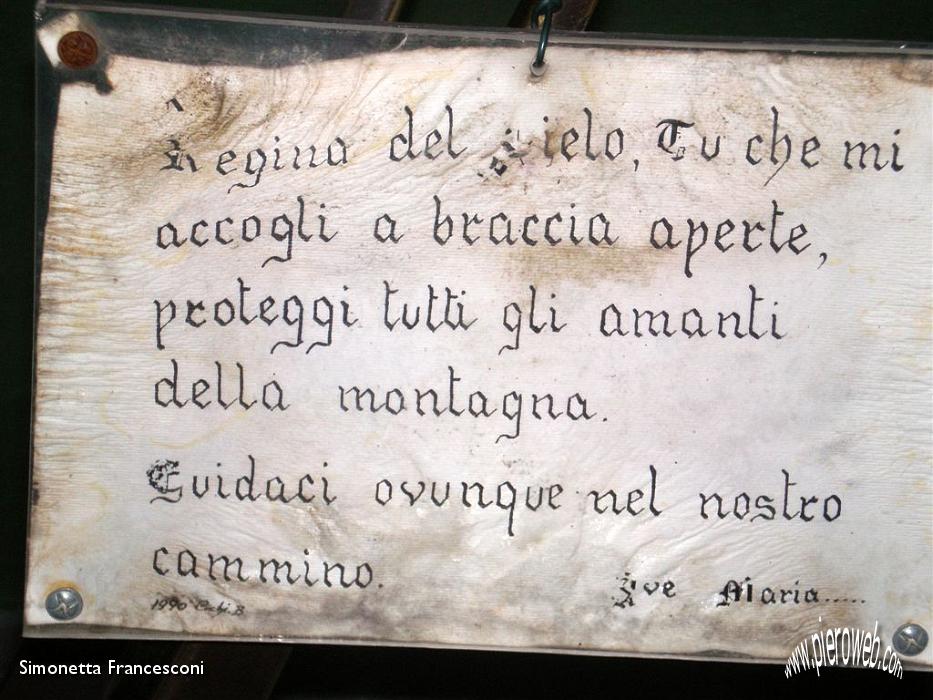 Regina del Cielo, Tu che mi
accogli a braccia aperte,
proteggi tutti gli amanti
della montagna.
Guidaci ovunque nel nostro
cammino.
Ave Maria.....
1990
Simonetta Francesconi
www.pieroweb.com